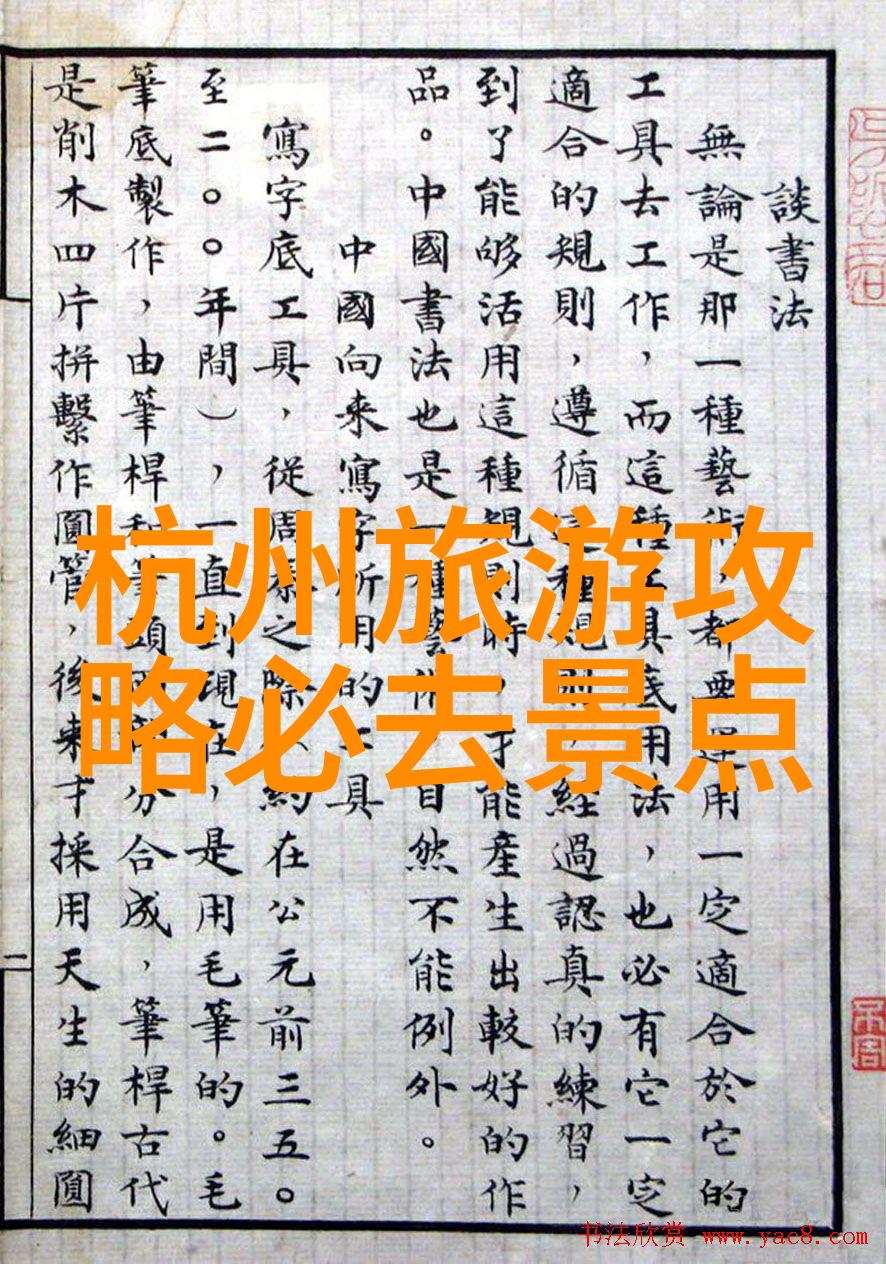 談書法
無論是那一種藝術，都要運用一定適合於它的
工具去工作，而這種工具底用法，也必有它一定
適合的規則，遵循這種規則，經過認真的練習，
到了能够活用這種規則時，才能產生出較好的作
品。中國書法也是一種藝術，自然不能例外。
中國向来寫字所用的工具
寫字底工具，從周秦之際（約在公元前三五〇
至二〇〇年間），一直到現在，是用毛筆的。毛
筆底製作，由筆桿和筆頭兩部分合成，筆桿古代
是削木四片拼繫作圓管，後来才採用天生的細圓
二
杭州旅游攻
略必去景点
书法欣赏 www.yac8.com